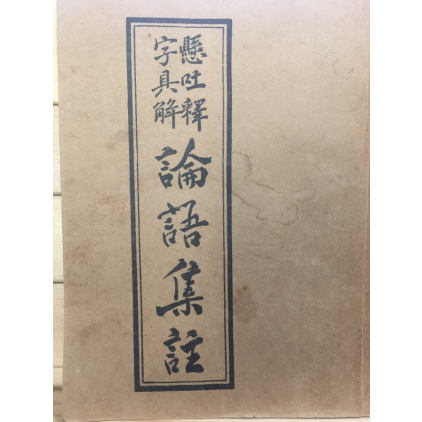 懸吐釋
字具解
論語集註